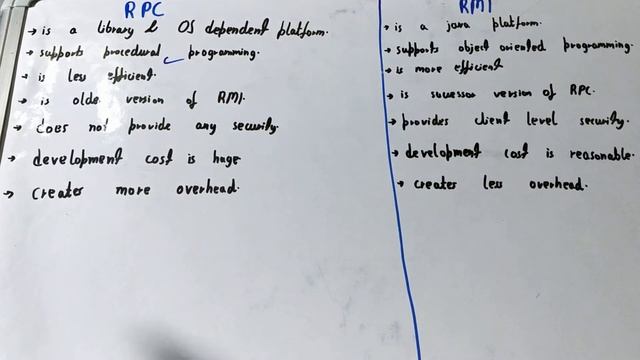 RPC
→ is a library & OS dependent platform.
→ supports procedural programming.
→ is less efficient.
→ is older version of RMI.
→ Does not provide any security.
→ development cost is huge
→ creates more overhead.
RMI
→ is a java platform.
→ supports object oriented programming.
→ is more efficient
→ is sucessor version of RPC.
→ provides client level security.
→ development cost is reasonable.
→ creates less overhead.